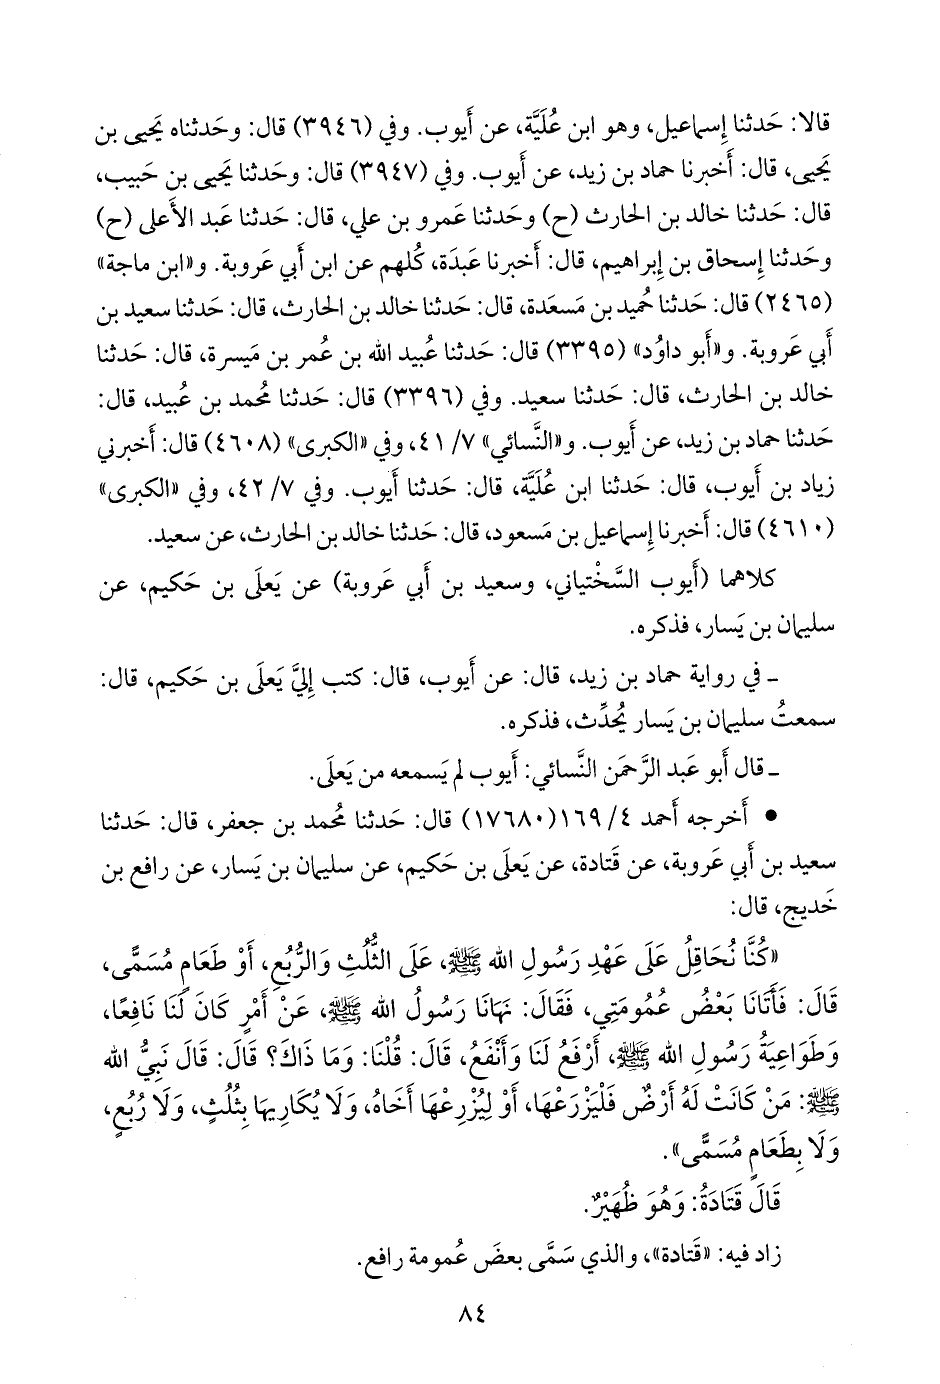 قالا: حَدثنا إِسماعيل، وهو ابن عُلَيَّة، عن أَيوب. وفي (٣٩٤٦) قال: وحَدثناه يَحيى بن
يَحيى، قال: أَخبرنا حماد بن زيد، عن أَيوب. وفي (٣٩٤٧) قال: وحَدثنا يَحيى بن حَبيب،
قال: حَدثنا خالد بن الحارث (ح) وحَدثنا عَمرو بن علي، قال: حَدثنا عبد الأَعلى (ح)
وحَدثنا إِسحاق بن إِبراهيم، قال: أَخبرنا عَبدَة، كُلهم عن ابن أَبي عَروبة. و«ابن ماجة»
(٢٤٦٥) قال: حَدثنا حُميد بن مَسعَدة، قال: حَدثنا خالد بن الحارث، قال: حَدثنا سعيد بن
أَبي عَروبة. و«أَبو داوُد» (٣٣٩٥) قال: حَدثنا عُبيد الله بن عُمر بن مَيسرة، قال: حَدثنا
خالد بن الحارث، قال: حَدثنا سعيد. وفي (٣٣٩٦) قال: حَدثنا مُحمد بن عُبيد، قال:
حَدثنا حماد بن زيد، عن أَيوب. و«النَّسائي» ٧/ ٤١، وفي «الكبرى» (٤٦٠٨) قال: أَخبرني
زياد بن أَيوب، قال: حَدثنا ابن عُلَيَّة، قال: حَدثنا أَيوب. وفي ٧/ ٤٢، وفي «الكبرى»
(٤٦١٠) قال: أَخبرنا إِسماعيل بن مَسعود، قال: حَدثنا خالد بن الحارث، عن سعيد.
كلاهما (أَيوب السَّخْتياني، وسعيد بن أَبي عَروبة) عن يَعلَى بن حَكيم، عن
سليمان بن يَسار، فذكره.
ـ في رواية حماد بن زيد، قال: عن أَيوب، قال: كتب إِليَّ يَعلَى بن حَكيم، قال:
سمعتُ سليمان بن يَسار يُحدِّث، فذكره.
ـ قال أَبو عَبد الرَّحمَن النَّسائي: أَيوب لم يَسمعه من يَعلَى.
• أَخرجه أَحمد ٤/ ١٦٩(١٧٦٨٠) قال: حَدثنا مُحمد بن جعفر، قال: حَدثنا
سعيد بن أَبي عَروبة، عن قَتادة، عن يَعلَى بن حَكيم، عن سليمان بن يَسار، عن رافع بن
خَديج، قال:
«كُنَّا نُحَاقِلُ عَلَى عَهْدِ رَسُولِ الله ﷺ، عَلَى الثُّلُثِ وَالرُّبُعِ، أَوْ طَعَامٍ مُسَمًّى،
قَالَ: فَأَتَانَا بَعْضُ عُمُومَتِي، فَقَالَ: نَهَانَا رَسُولُ الله ﷺ، عَنْ أَمْرٍ كَانَ لَنَا نَافِعًا،
وَطَوَاعِيَةُ رَسُولِ الله ﷺ، أَرْفَعُ لَنَا وَأَنْفَعُ، قَالَ: قُلْنَا: وَمَا ذَاكَ؟ قَالَ: قَالَ نَبِيُّ الله
ﷺ: مَنْ كَانَتْ لَهُ أَرْضٌ فَلْيَزْرَعْهَا، أَوْ لِيُزْرِعْهَا أَخَاهُ، وَلَا يُكَارِيهَا بِثُلُثٍ، وَلَا رُبُعٍ،
وَلَا بِطَعَامٍ مُسَمًّى».
قَالَ قَتَادَةُ: وَهُوَ ظُهَيْرٌ.
زاد فيه: «قَتادة»، والذي سَمَّى بعضَ عُمومة رافع.
٨٤